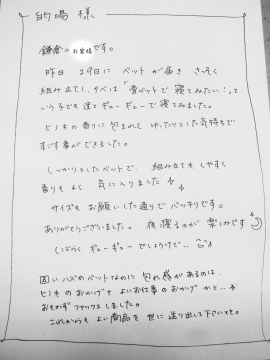 的場 様
鎌倉の お客様 です。
昨日 29日に ベットが届き、さっそく
組み立てし、夕べは「畳ベットで 寝てみたい!」と
いう子ども達とギューギューで寝てみました。
ヒノキの香りに包まれて ゆったりとした気持ちで
すごす事ができました。
しっかりとしたベットで、組み立てもしやすく
香りもよく 気に入りました
サイズも お願いした通りで バッチリです。
ありがとうございました。 夜寝るのが 楽しみです
しばらく ギューギューでしょうけど…
固いハズのベットなのに 包まれ感があるのは、
ヒノキのおかげと よいお仕事のおかげ かと…
おもわず ファックスしました。
これからもよい商品を 世に送り出して下さいませ。